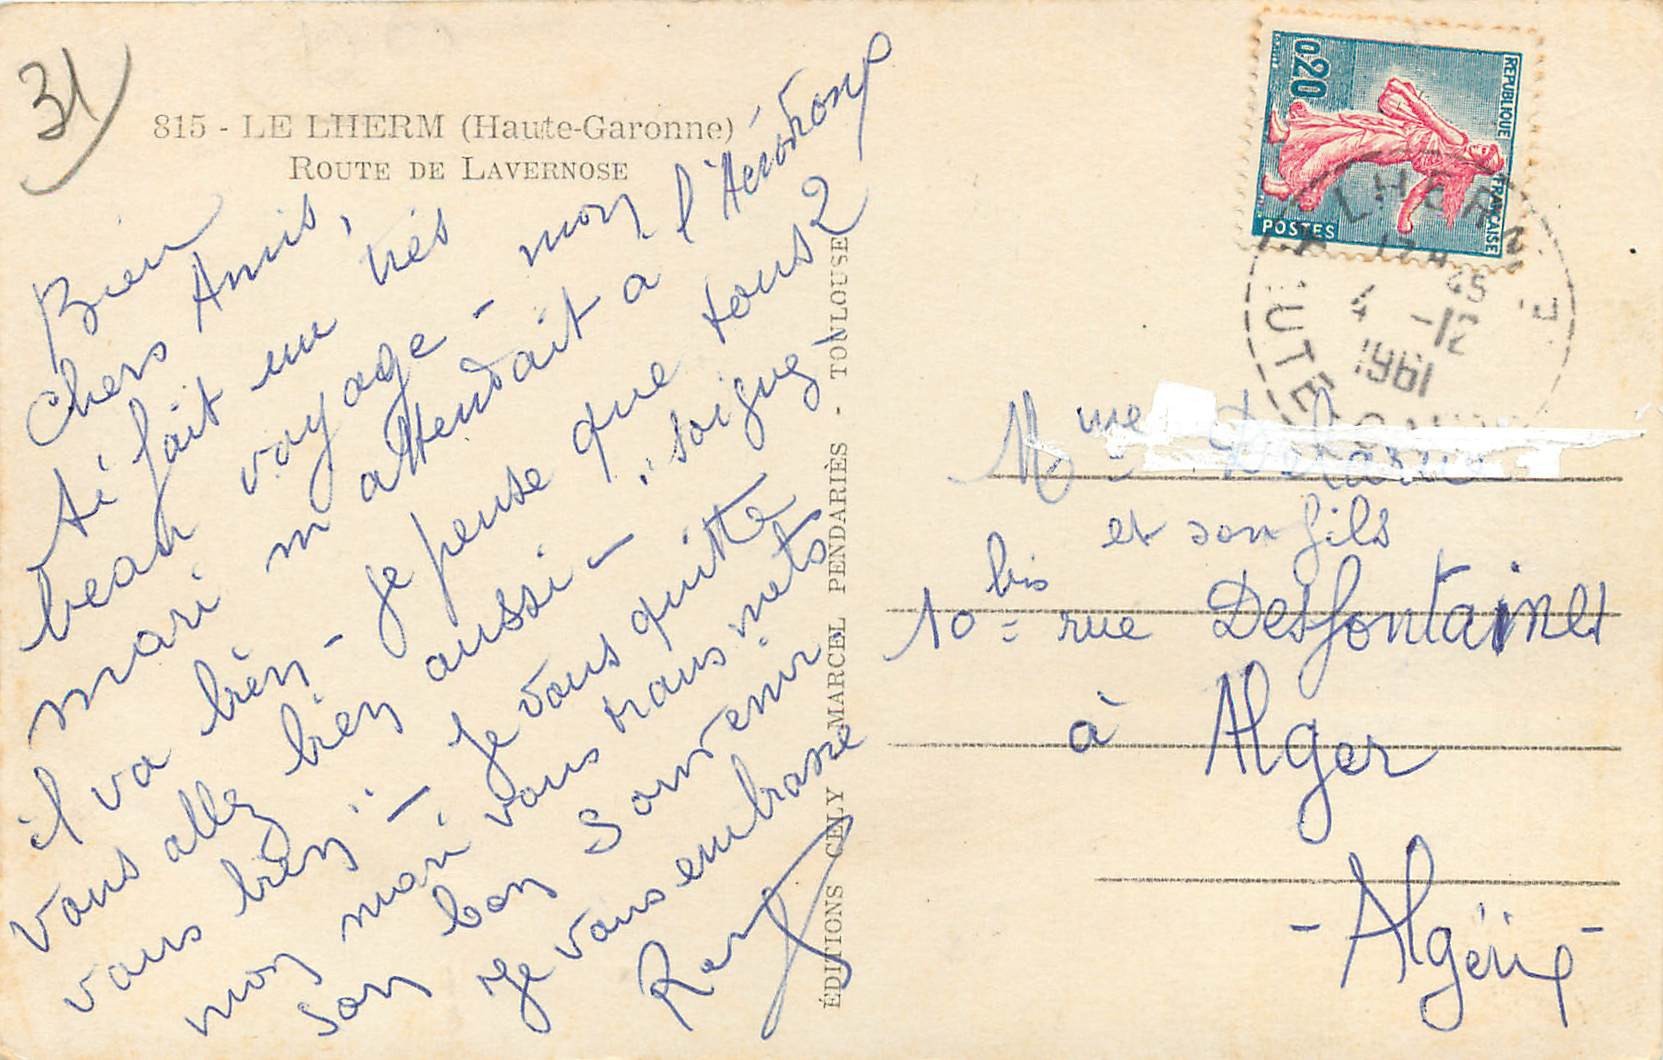 31
815 - LE LHERM (Haute-Garonne)
ROUTE DE LAVERNOSE
Bien
chers Amis,
ai fait un très
beau voyage - mon
mari m'attendait a l'Aérodrome
il va bien - Je pense que tous 2
vous allez bien aussi - "soignez
vous bien" - Je vous quitte
mon mari vous trans mets
son bon souvenir
Je vous embrasse
ÉDITIONS CELY MARCEL PENDARIÈS - TOULOUSE
0,20
REPUBLIQUE FRANÇAISE
POSTES
LHERM
12 H 45
4 -12
1961
UTE
Mme
et son fils
10 bis = rue Desfontaines
à Alger
- Algérie -